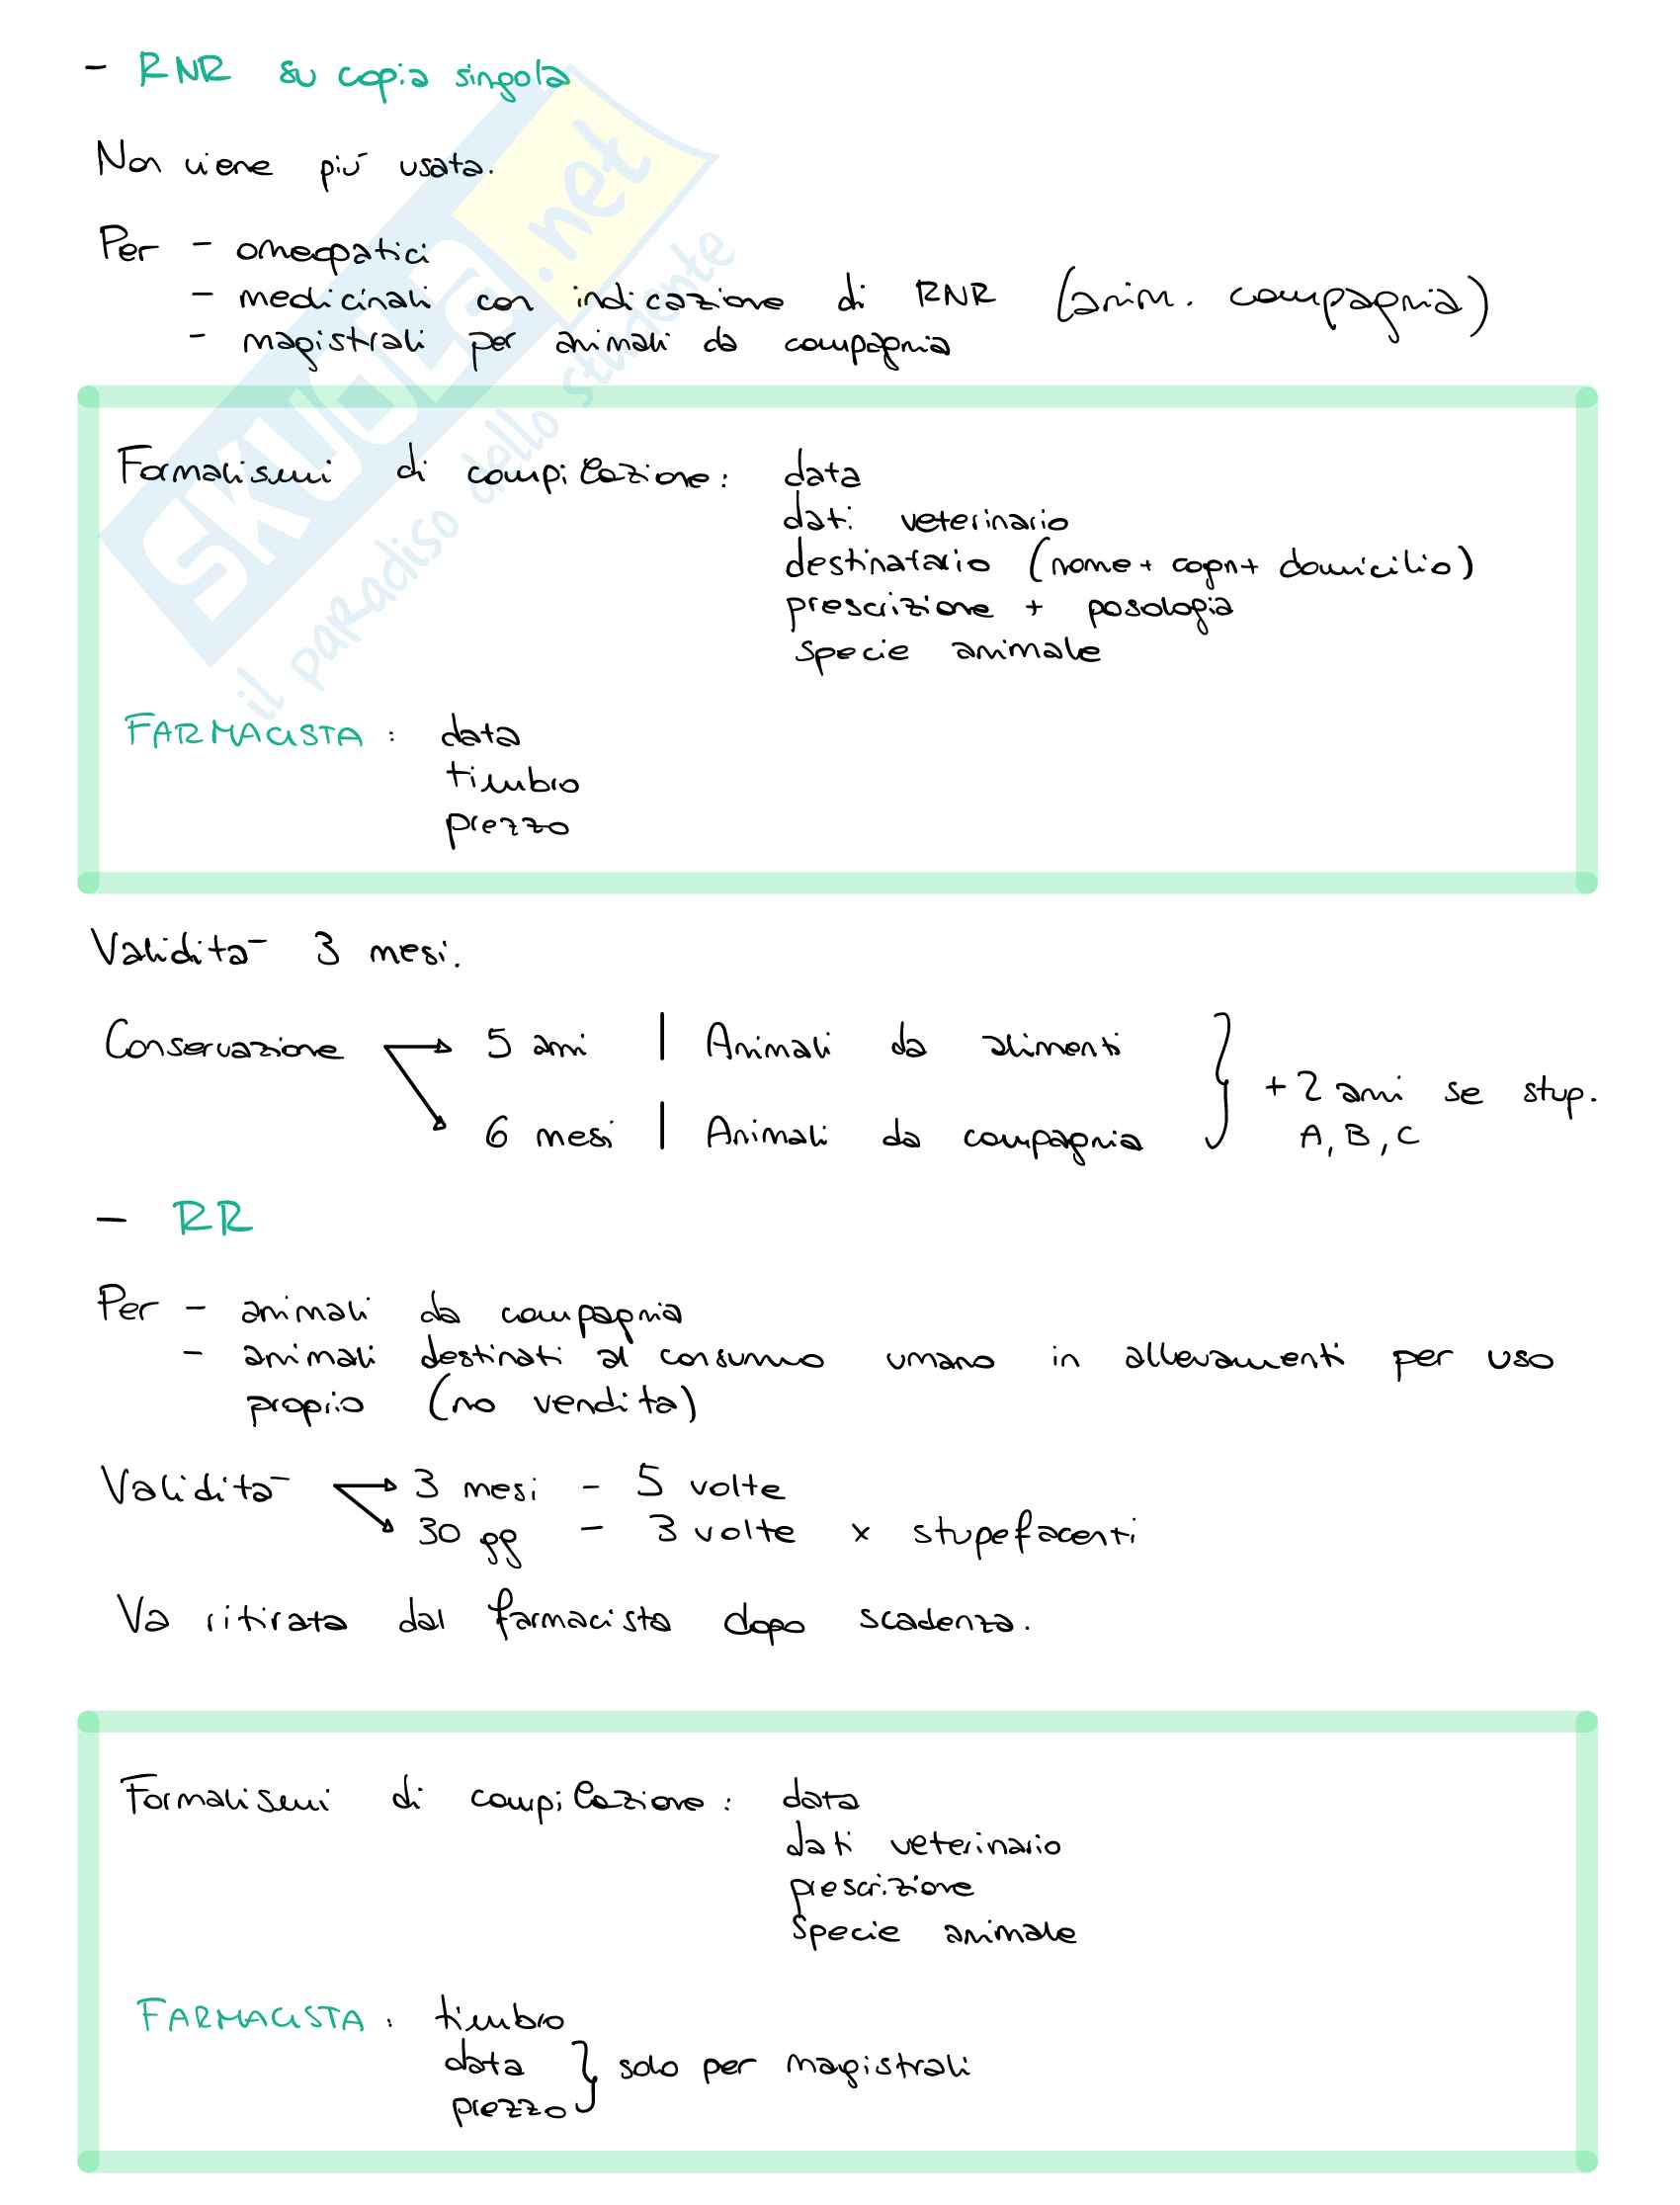 - RNR su copia singola
Non viene più usata.
Per - omeopatici
- medicinali con indicazione di RNR (anim. compagnia)
- magistrali per animali da compagnia
Formalismi di compilazione: data
dati veterinario
destinatario (nome + cogn + domicilio)
prescrizione + posologia
specie animale
FARMACISTA: data
timbro
prezzo
Validità 3 mesi.
Conservazione → 5 anni | Animali da alimenti
+ 2 anni se stup.
→ 6 mesi | Animali da compagnia
A, B, C
- RR
Per - animali da compagnia
- animali destinati al consumo umano in allevamenti per uso
proprio (no vendita)
Validità → 3 mesi - 5 volte
→ 30 gg - 3 volte x stupefacenti
Va ritirata dal farmacista dopo scadenza.
Formalismi di compilazione: data
dati veterinario
prescrizione
specie animale
FARMACISTA: timbro
data } solo per magistrali
prezzo
SKUOLA.net
il paradiso dello studente